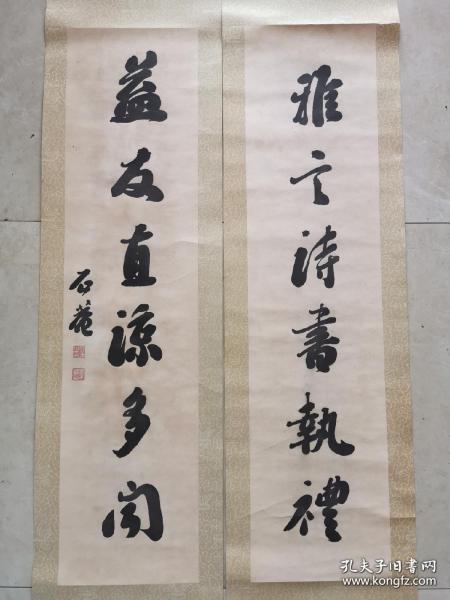 雅言詩書執禮
益友直諒多聞
石菴
孔夫子旧书网
www.kongfz.com